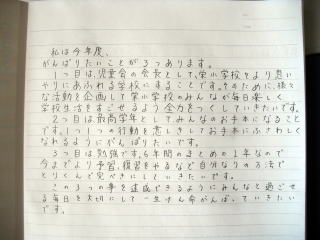 私は今年度、
がんばりたいことが3つあります。
1つ目は、児童会の会長として、栄小学校をより思い
やりにあふれる学校にすることです。そのために、様々
な活動を企画して栄小学校のみんなが毎日楽しく
学校生活をすごせるよう全力をつくしていきたいです。
2つ目は、最高学年としてみんなのお手本になること
です。1つ1つの行動を意しきしてお手本にふさわしく
なれるようにがんばりたいです。
3つ目は勉強です。6年間のまとめの1年なので
今までより予習、復習をやるなど自分なりの方法で
とりくんで完ぺきにしていきたいです。
この3つの事を達成できるようにみんなと過ごせ
る毎日を大切にして一生けん命がんばっていきたい
です。